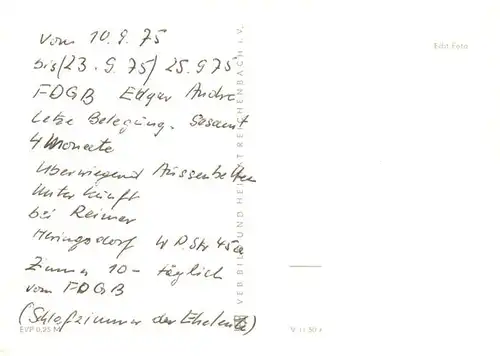 vom 10.9.75
bis (23.9.75) 25.9.75
FDGB Edgar Andre
Letze Belegung. Gesamt
4 Monate
Überwiegend Aussenbetten
Unterkunft
bei Reimer
Heringsdorf W P. Str 45a
Zimmer 10- täglich
vom FDGB
(Schlafzimmer der Eheleute)
EVP 0,25 M
VEB BILD UND HEIMAT REICHENBACH i. V.
Foto